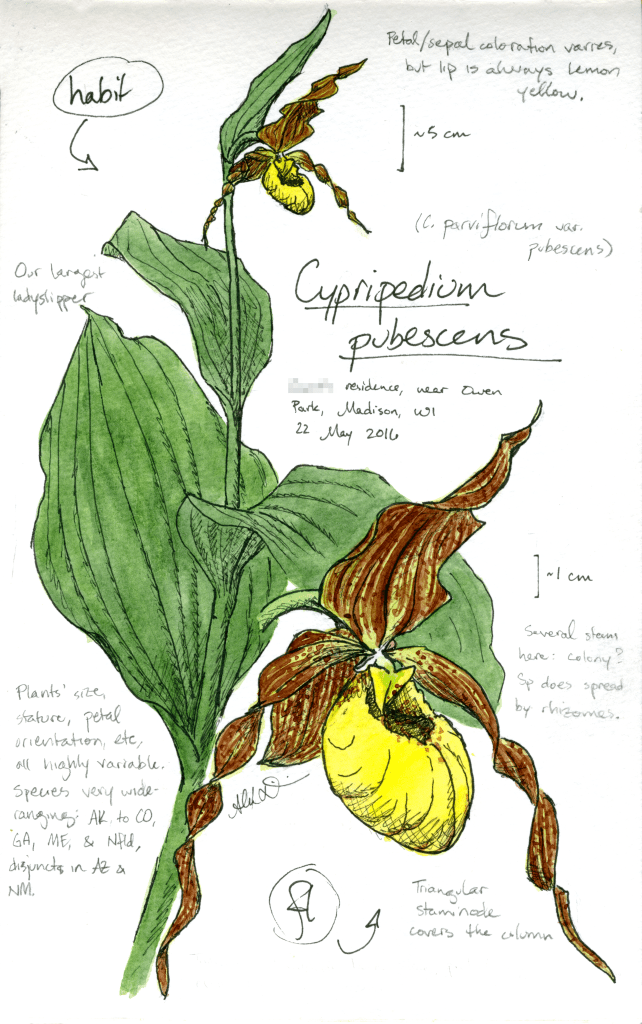 habit
Petal/sepal coloration varies,
but lip is always lemon
yellow.
~5 cm
(C. parviflorum var.
pubescens)
Our largest
ladyslipper
Cypripedium
pubescens
residence, near Owen
Park, Madison, WI
22 May 2016
~1 cm
Several stems
here: colony?
Sp does spread
by rhizomes.
Plants' size,
stature, petal
orientation, etc,
all highly variable.
Species very wide-
ranging: AK to CO,
GA, ME, & Nfld,
disjuncts in AZ &
NM.
fl
Triangular
staminode
covers the column